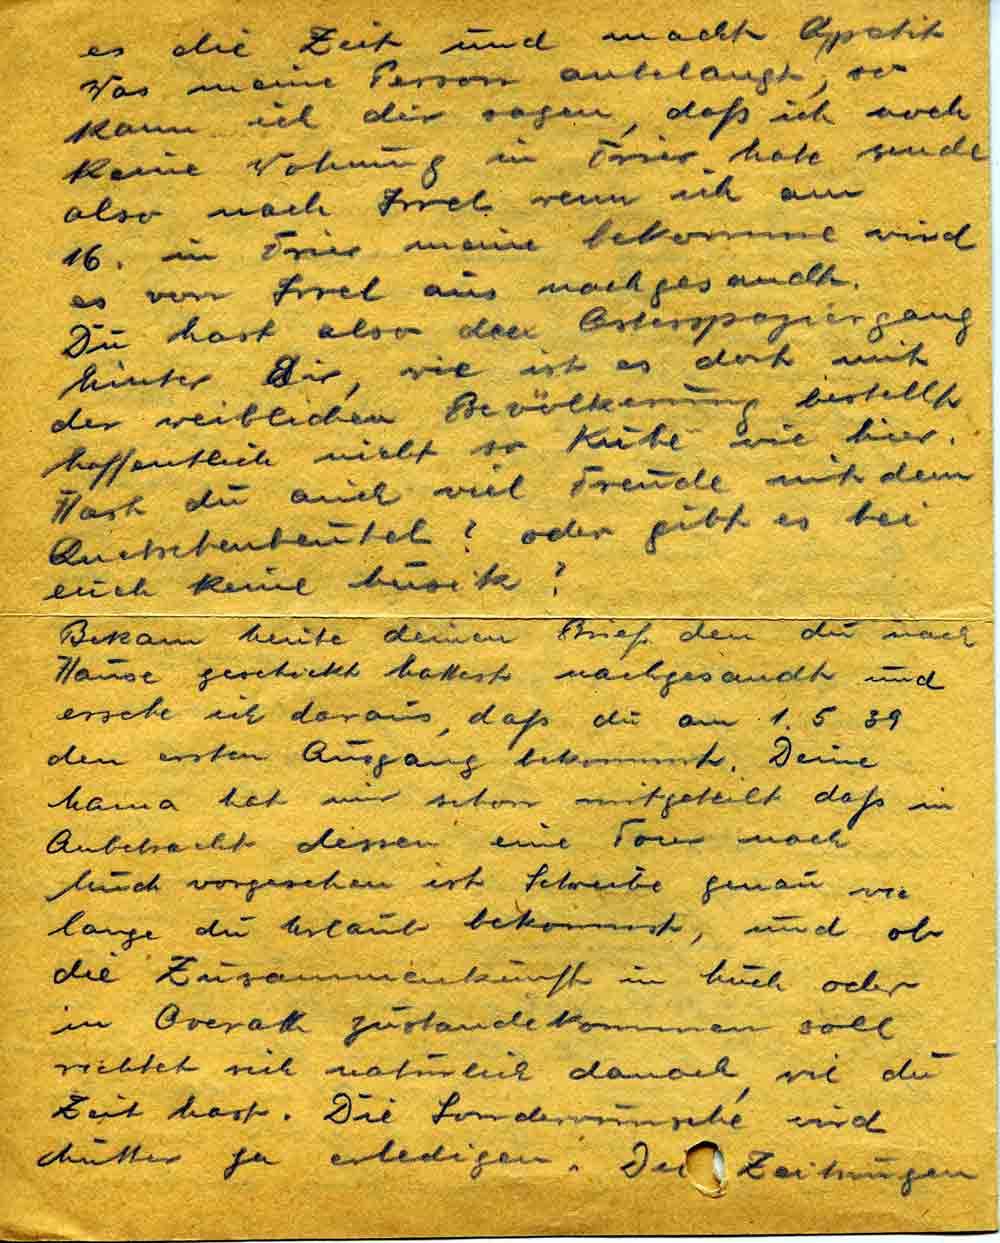 es die Zeit und macht Appetit
Was meine Person anbelangt, so
kann ich dir sagen, daß ich noch
keine Wohnung in Trier habe sende
also nach Irrel wenn ich am
16. in Trier meine bekomme wird
es von Irrel aus nachgesandt.
Du hast also den Osterspaziergang
hinter Dir, wie ist es dort mit
der weiblichen Bevölkerung bestellt
hoffentlich nicht so Kühl wie hier.
Hast du auch viel Freude mit dem
Quetschenbeutel? oder gibt es bei
euch keine Musik?
Bekam heute deinen Brief den du nach
Hause geschickt hattest nachgesandt und
ersehe ich daraus, daß du am 1. 5 39
den ersten Ausgang bekommst. Deine
Mama hat mir schon mitgeteilt daß in
Anbetracht dessen eine Tour nach
Much vorgesehen ist Schreibe genau wie
lange du Urlaub bekommst, und ob
die Zusammenkunft in Much oder
in Overath zustandekommen soll
richtet sich natürlich danach, wie du
Zeit hast. Die Sonderwünsche wird
Mutter ja erledigen. Die Zeitungen